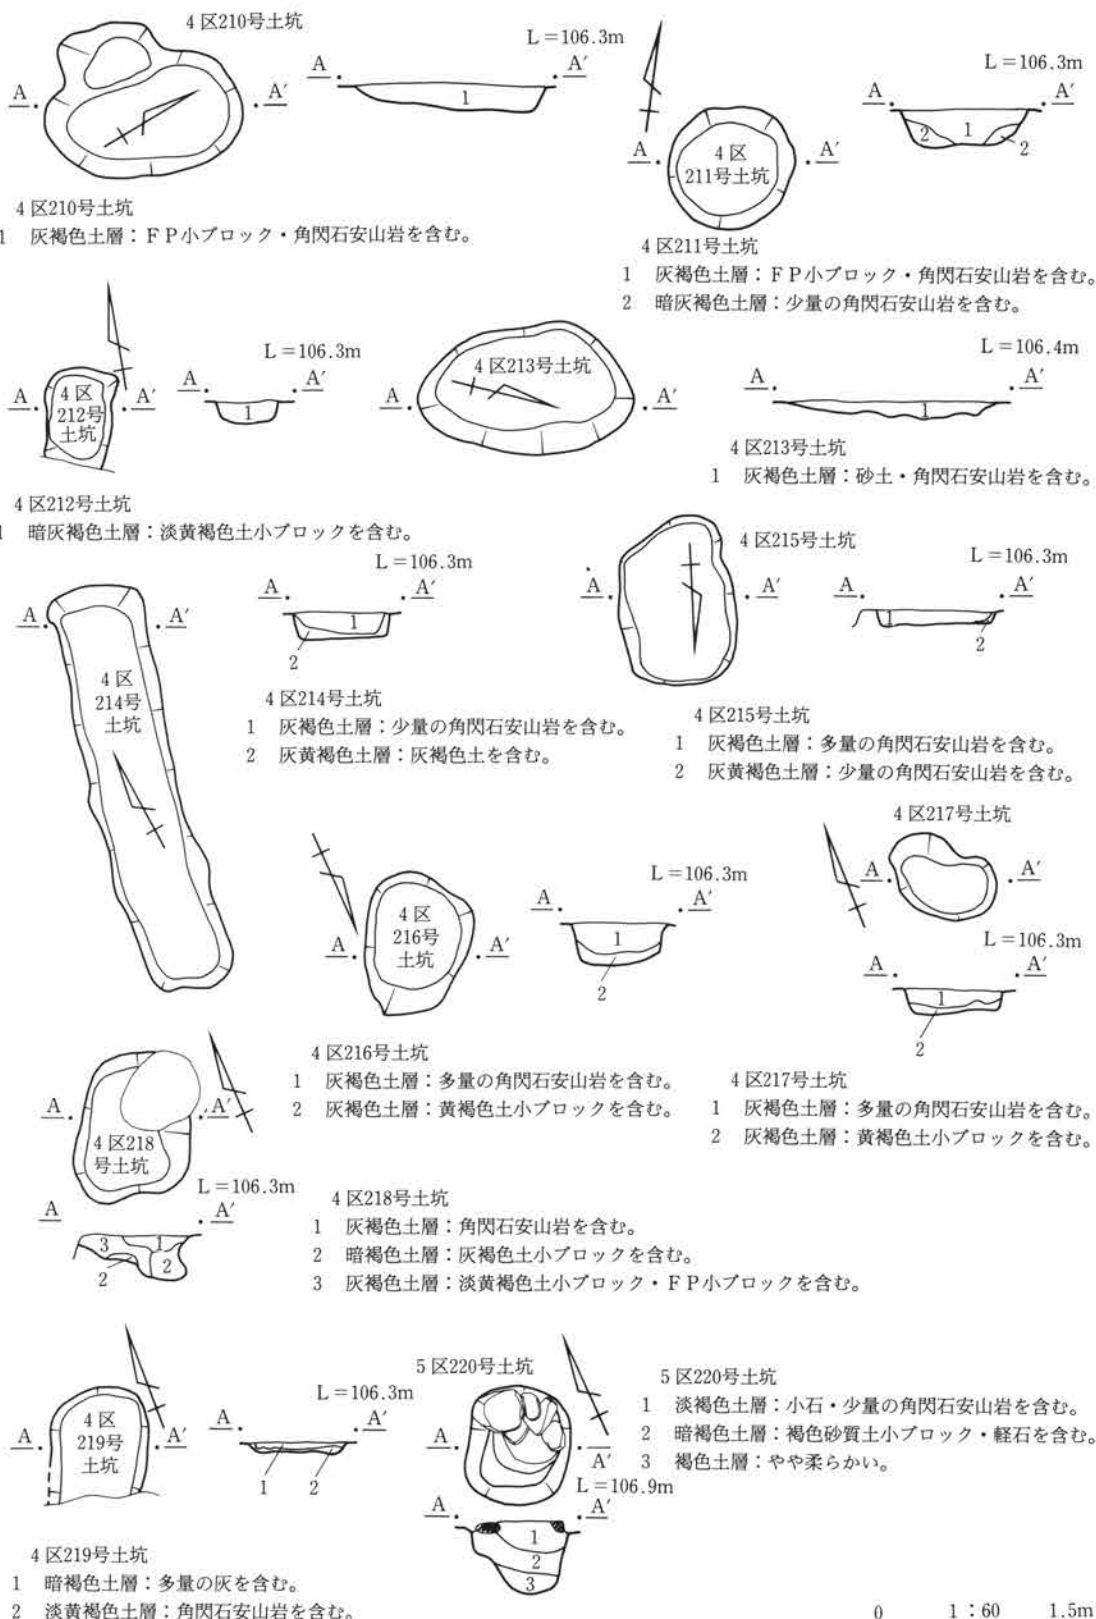 4区210号土坑
L=106.3m
A A′
A A′
1
4区210号土坑
1 灰褐色土層：FP小ブロック・角閃石安山岩を含む。
L=106.3m
A A′
A A′
4区
211号土坑
2 1 2
4区211号土坑
1 灰褐色土層：FP小ブロック・角閃石安山岩を含む。
2 暗灰褐色土層：少量の角閃石安山岩を含む。
L=106.3m
A A′
A A′
4区
212号
土坑
1
4区212号土坑
1 暗灰褐色土層：淡黄褐色土小ブロックを含む。
4区213号土坑
L=106.4m
A A′
A A′
1
4区213号土坑
1 灰褐色土層：砂土・角閃石安山岩を含む。
L=106.3m
A A′
A A′
4区
214号
土坑
1
2
4区214号土坑
1 灰褐色土層：少量の角閃石安山岩を含む。
2 灰黄褐色土層：灰褐色土を含む。
4区215号土坑
L=106.3m
A A′
A A′
1
2
4区215号土坑
1 灰褐色土層：多量の角閃石安山岩を含む。
2 灰黄褐色土層：少量の角閃石安山岩を含む。
L=106.3m
A A′
A A′
4区
216号
土坑
1
2
4区216号土坑
1 灰褐色土層：多量の角閃石安山岩を含む。
2 灰褐色土層：黄褐色土小ブロックを含む。
4区217号土坑
A A′
L=106.3m
A A′
1
2
4区217号土坑
1 灰褐色土層：多量の角閃石安山岩を含む。
2 灰褐色土層：黄褐色土小ブロックを含む。
A A′
4区218
号土坑
L=106.3m
A A′
3 1
2 2
4区218号土坑
1 灰褐色土層：角閃石安山岩を含む。
2 暗褐色土層：灰褐色土小ブロックを含む。
3 灰褐色土層：淡黄褐色土小ブロック・FP小ブロックを含む。
L=106.3m
A A′
A A′
4区
219号
土坑
1 2
4区219号土坑
1 暗褐色土層：多量の灰を含む。
2 淡黄褐色土層：角閃石安山岩を含む。
5区220号土坑
A A′
L=106.9m
A A′
1
2
3
5区220号土坑
1 淡褐色土層：小石・少量の角閃石安山岩を含む。
2 暗褐色土層：褐色砂質土小ブロック・軽石を含む。
3 褐色土層：やや柔らかい。
0 1：60 1.5m